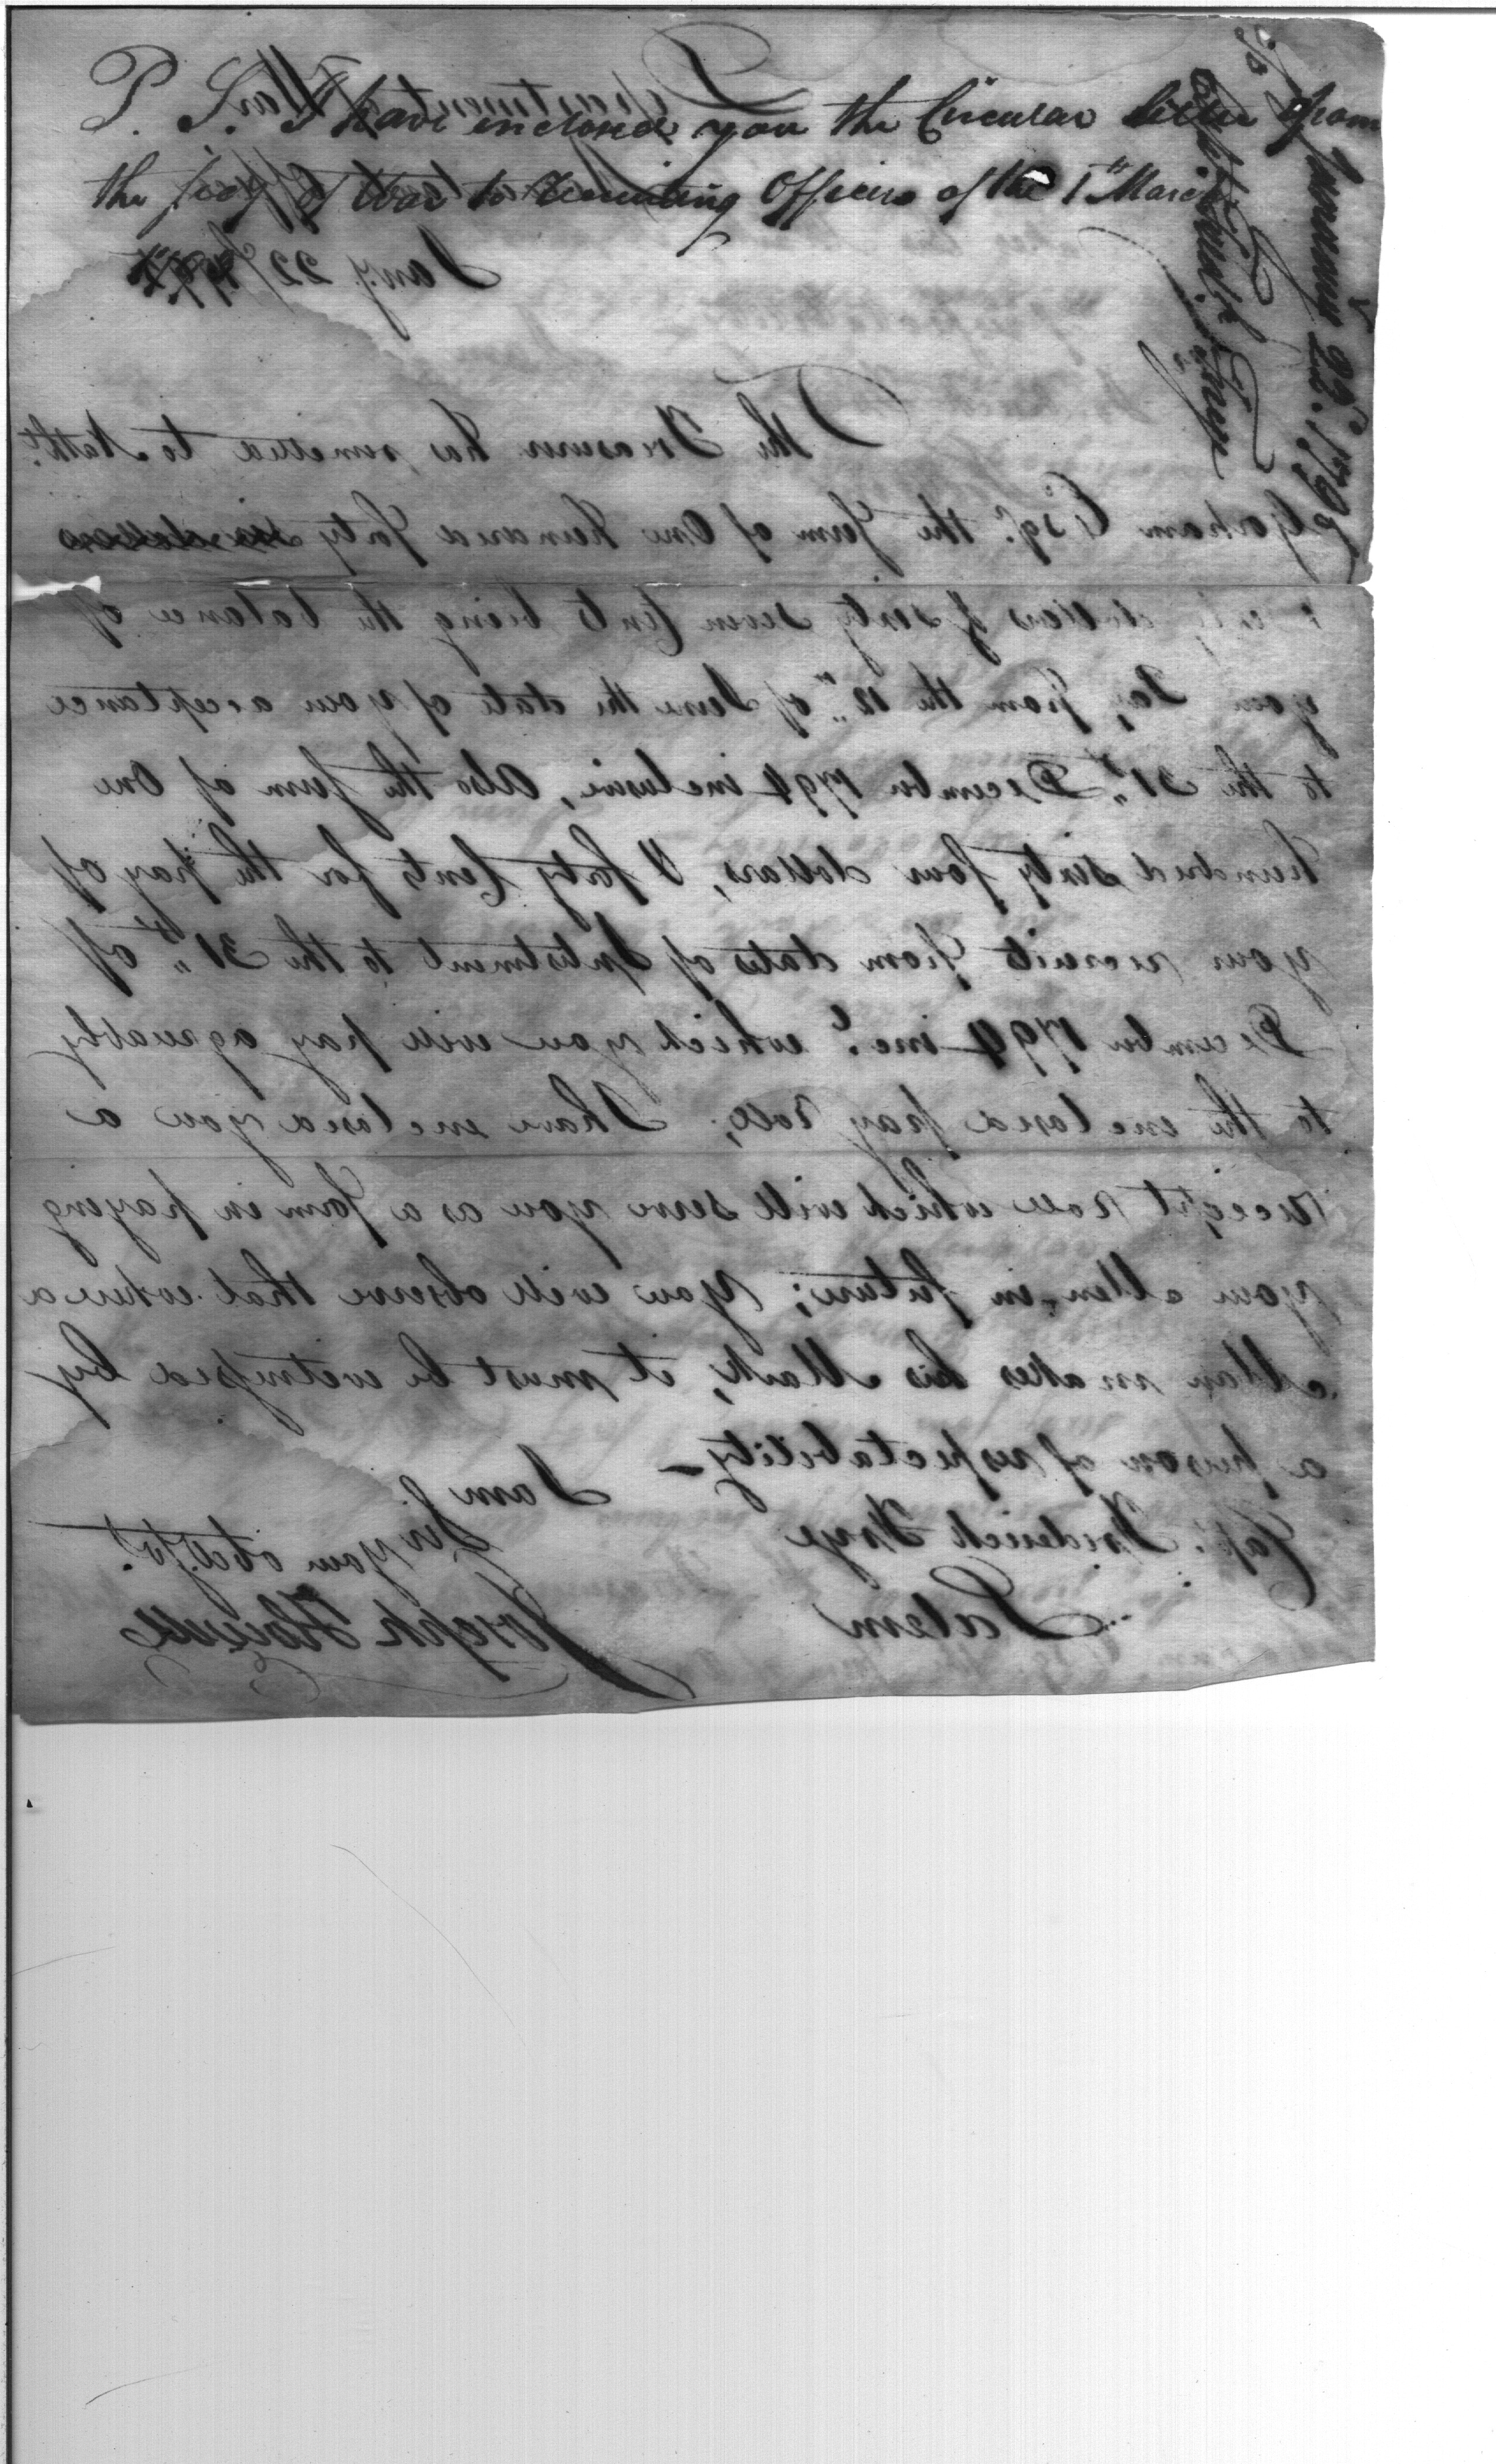 P. S. I have inclosed you the Circular letter from
the Secy of War to recruiting Officers of the 1st March
Department
War
Jany. 22d
The Treasurer has remitted to Nathl.
Gorham Esqr. the Sum of One hundred forty six dollars
dollars & sixty seven Cents being the balance of
your Pay from the 12th of June the date of your acceptance
to the 31st December 1794 inclusive, Also the Sum of One
hundred sixty four dollars, & forty Cents for the pay of
your recruits from dates of Inlistment to the 31st of
December 1794 incl. which you will pay agreeably
to the enclosed pay Roll; I have enclosed you a
receipt Roll which will serve you as a form in paying
your Men in future; You will observe that where a
Man makes his Mark, it must be witnessed by
a person of respectability —
I am
Sir your obed. St.
Joseph Howell
Capt. Frederick Frye
Salem
Frye
January 22d. 1795